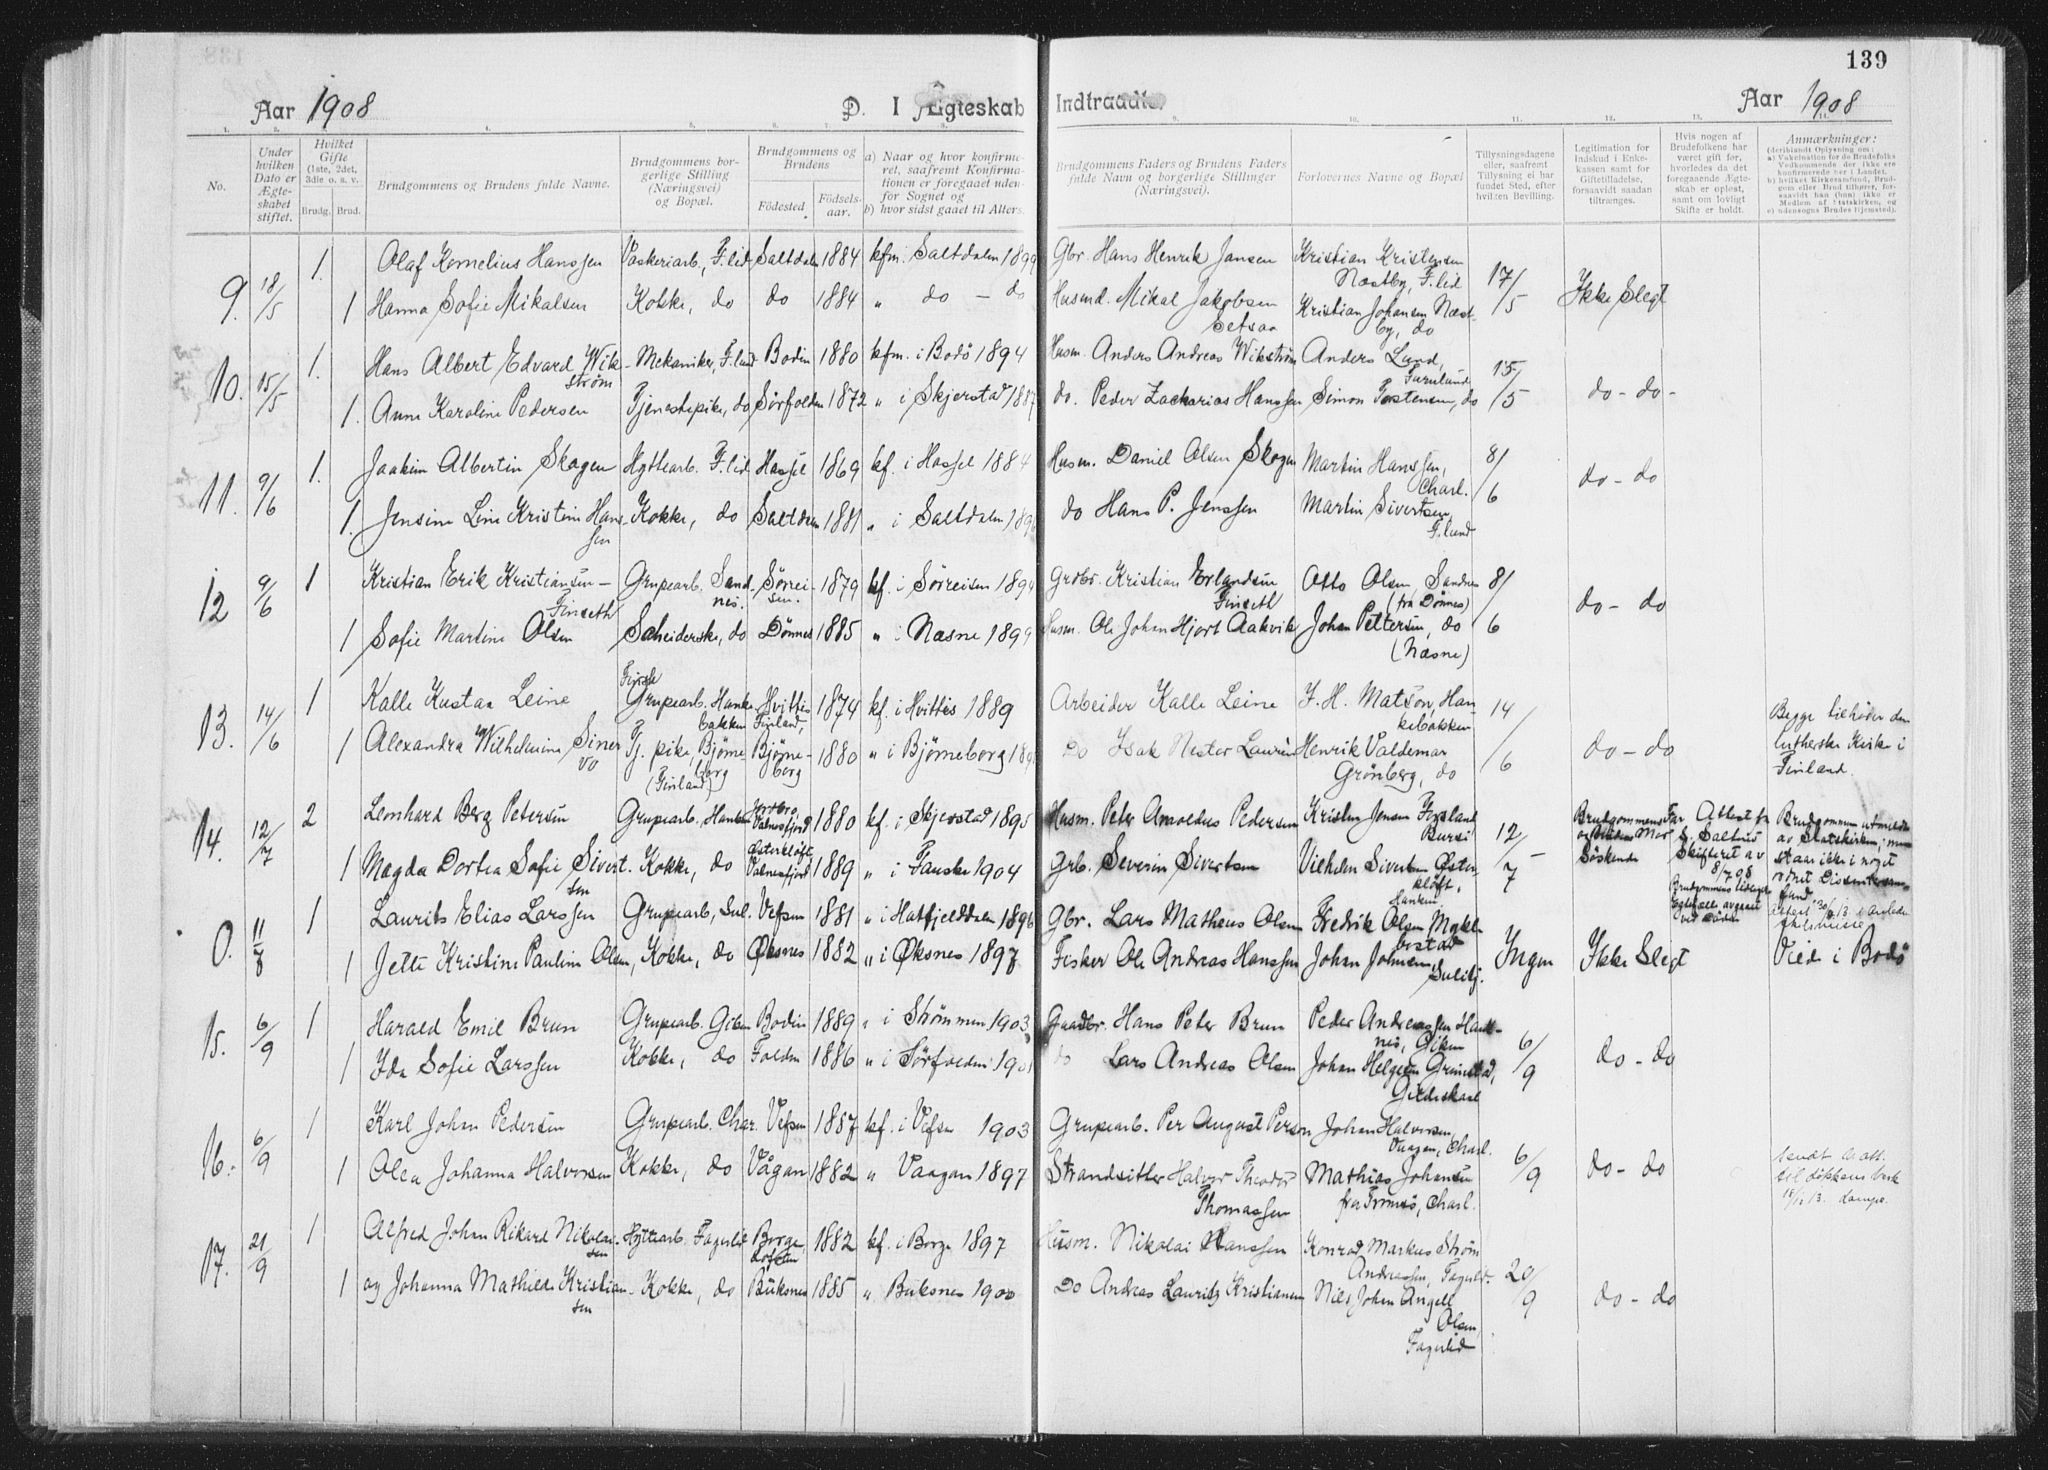 139
Aar 1908 D. I Ægteskab Indtraadte. Aar 1908
1. 2. 3. 4. 5. 6. 7. 8. 9. 10. 11. 12. 13. 14.
No.
Under hvilken Dato er Ægteskabet stiftet.
Hvilket Gifte (1ste, 2det, 3die o. s. v.
Brudg. Brud.
Brudgommens og Brudens fulde Navne.
Brudgommens borgerlige Stilling (Næringsvei) og Bopæl.
Brudgommens og Brudens
Fødested. Fødselsaar.
a) Naar og hvor konfirmeret, saafremt Konfirmationen er foregaaet udenfor Sognet og
b) hvor sidst gaaet til Alters.
Brudgommens Faders og Brudens Faders fulde Navn og borgerlige Stillinger (Næringsvei).
Forlovernes Navne og Bopæl
Tillysningsdagene eller, saafremt Tillysning ei har fundet Sted, efter hvilken Bevilling.
Legitimation for Indskud i Enkekassen samt for Giftetilladelse, forsaavidt saadan tiltrænges.
Hvis nogen af Brudefolkene har været gift før, hvorledes da det foregaaende Ægteskab er opløst, samt om lovligt Skifte er holdt.
Anmærkninger:
9. 18/5 1. Olaf Kornelius Hanssen Vaskeriarb., F.lid Saltdalen 1884 kfm. i Saltdalen 1899 Gbr. Hans Henrik Jansen Kristian Kristensen Næstby, F.lid 17/5 Ikke Slegt
1 Hanna Sofie Mikalsen Kokke, do do 1884 " do - do Husmd. Mikal Jakobsen Setsaa Kristian Johansen Næstby, do
10. 15/5 1. Hans Albert Edvard Wikstrøm Mekaniker, F.lund Bodin 1880 kfm. i Bodö 1894 Husm. Anders Andreas Wikstrøm Anders Lund, Furulund 15/5 do - do -
1. Anne Karoline Pedersen Tjenestepike, do Sörfolden 1872 " i Skjerstad 1887 do. Peder Zacharias Hanssen Simon Torstensen, do
11. 9/6 1. Joakim Albertin Skogen Hyttearb. F.lid Hassel 1869 kf. i Hassel 1884 Husm. Daniel Olsen Skogen Martin Hanssen, Charl. 8/6 do - do
1. Jensine Line Kristine Hanssen Kokke, do Saltdalen 1881 " i Saltdalen 1896 do Hans P. Jenssen Martin Sivertsen F.lund
12 9/6 1 Kristian Erik Kristiansen - Finseth Grupearb. Sandnes. Sörreisen. 1879 kf. i Sörreisen 1894 Grdbr. Kristian Erlandsen Finseth Otto Olsen Sandnes (fra Dønnes) 8/6 do - do
1 Sofie Martine Olsen Scheiderske, do Dönnes 1885 " i Næsne 1899 Husm. Ole Johan Hjort Aakvik Johan Pettersen, do (Næsne)
13. 14/6 1 Kalle Kustaa Leine Finsk Grupearb. Hankebakken Hvittis Finland, 1874 kf. i Hvittis 1889 Arbeider Kalle Leine F. H. Matson, Hankebakken 14/6 do - do Begge tilhører den lutherske Kirke i Finland.
1 Alexandra Wilhelmina Sinervo Tj. pike, Bjørneborg (Finland) Bjørneborg 1880 " i Bjørneborg Do Isak Nestor Laurén Henrik Valdemar Grönberg, do
14. 12/7 2 Leonhard Berg Petersen Grupearb. Hanken Valnesfjord 1880 kf. i Skjerstad 1895 Husm. Peter Arnoldus Pedersen Kristen Jensen Finsland Bursi 12/7 - Brudgommens Far og Brudens Mor Söskende Attest fra S. Saltens Skifteret av 8/7 08 Brudgommen utmeldt av Statskirken, men staar ikke i noget ordnet Dissentersamfund
1 Magda Dortea Sofie Sivertsen Kokke, do Østerkløft Valnesfjord 1889 " i Fauske 1904 Grb. Severin Sivertsen Vilhelm Sivertsen Østerkløft, Hanken
0. 11/8 1 Laurits Elias Larssen Grupearb, Sul. Vefsen 1881 " i Hatfjelddalen 1896 Gbr. Lars Matheus Olsen Fredrik Olsen Myklebostad Ingen Ikke Slegt Vied i Bodö
1 Jette Kristine Pauline Olsen, Kokke, do Øksnes 1882 " i Øksnes 1897 Fisker Ole Andreas Hanssen Johan Johnsen, Sulitj.
15. 6/9 1 Harald Emil Brun Grupearb. Giken Bodin 1889 " i Strømmen 1903 Gaardbr. Hans Peter Brun Peder Andreassen Hanknes, Giken 6/9 do - do
1 Ida Sofie Larssen Kokke, do Folden 1886 " i Sörfolden 1901 do Lars Andreas Olsen Johan Helgesen Grimstad, Gildeskaal
16. 6/9 1 Karl Johan Pedersen Grupearb. Char. Vefsen 1887 kf. i Vefsen 1903 Grupearb. Per August Person Johan Halvorsen, Vaagan, Charl. 6/9 do - do
1 Olea Johanna Halvorsen Kokke, do Vågan 1882 " Vaagan 1897 Strandsitter Halvor Theodor Thomassen Mathias Johansen fra Tromsö, Charl. sendt til Løkkens Verk
17. 21/9 1 Alfred Johan Rikard Nikolaisen Hyttearb. Fagerlid Borge, Lofoten 1882 kf. i Borge 1897 Husm. Nikolai Hanssen Konrad Markus Strøm Andreassen, Fagerlid. 20/9 do - do
1 og Johanna Mathilde Kristiansen Kokke, do Buksnes 1885 " Buksnes 1900 Do Andreas Lauritz Kristiansen Nils Johan Angell Olsen, Fagerlid